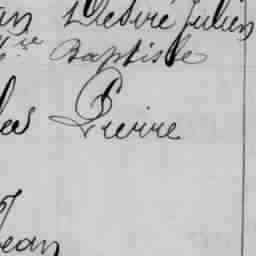 an Désiré Julien
Baptiste
Pierre
Jean